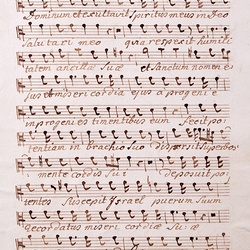 Dominum et exultavit Spiritus meus in Deo
Salutari meo quia respexit humili
tatem ancillæ Suæ et Sanctum nomen e
jus et misericordia ejus a progenie
in progenies timentibus eum Fecit po
tentiam in brachio Suo dispersit Superbos
mente cordis Sui deposuit po
tentes Suscepit Israel puerum Suum
recordatus misericordiæ Suæ